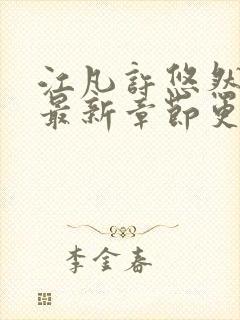 江凡许悠然
最新章节更
李金春